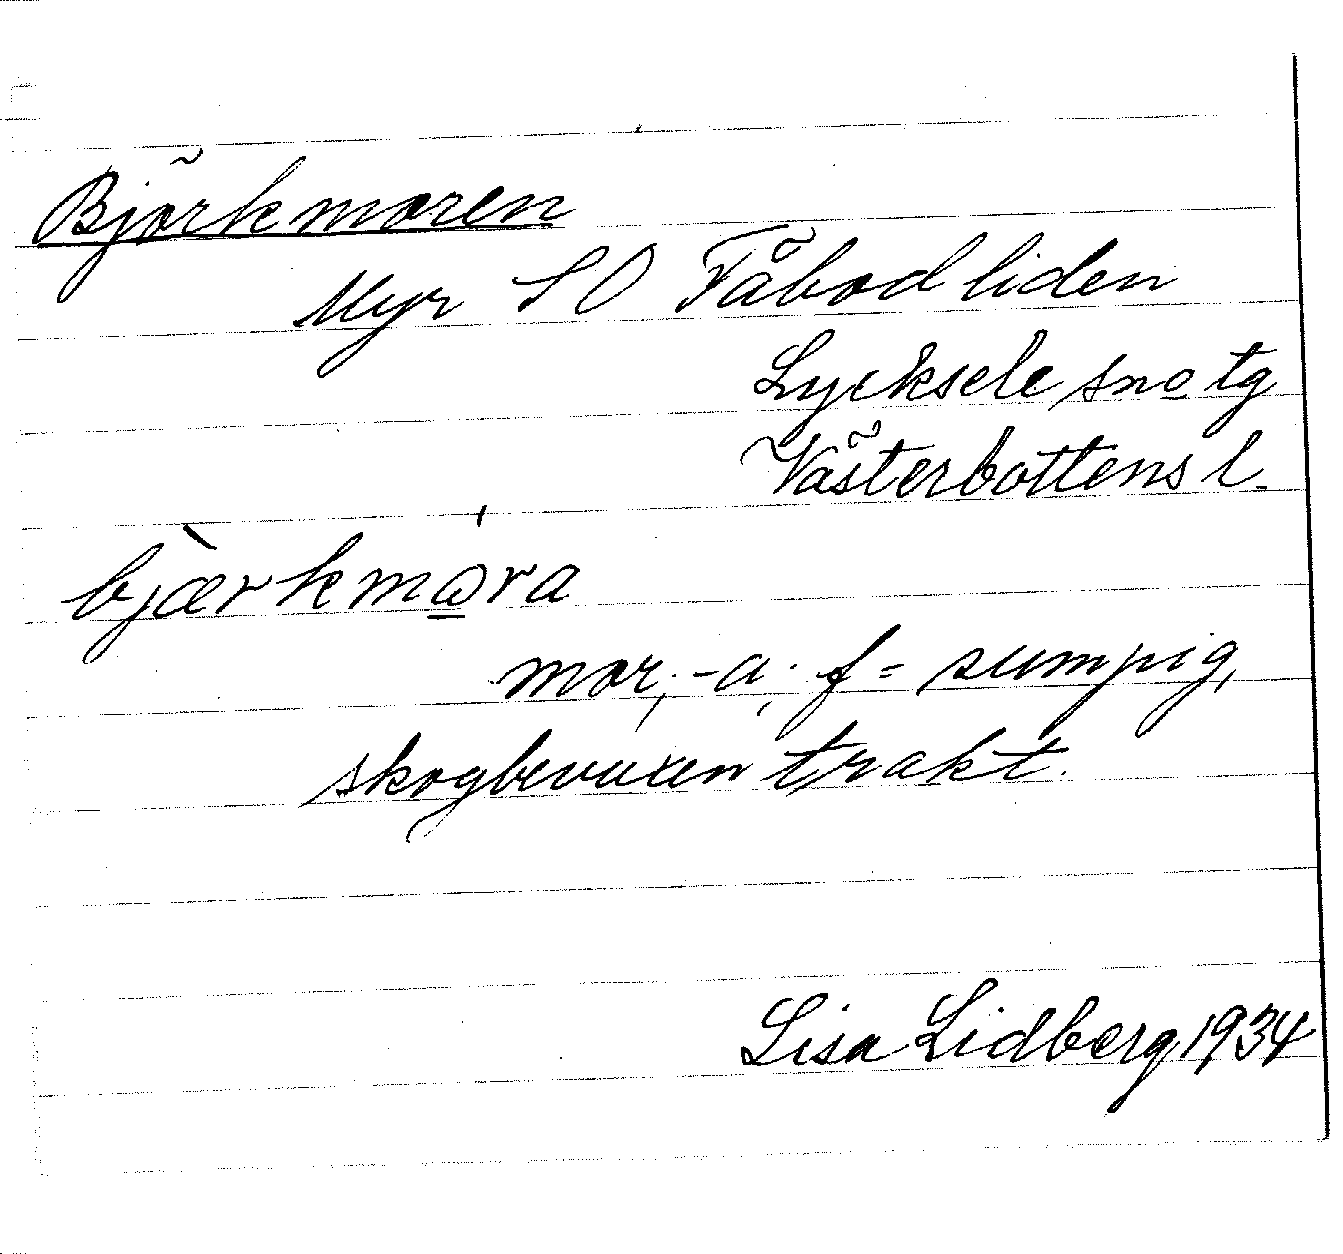 Björkmoren
Myr SO Fäbodliden
Lycksele sn o tg
Västerbottens l.
bjæ̀rkmώ̲ra
mor, -a, f = sumpig,
skogbevuxen trakt.
Lisa Lidberg 1934